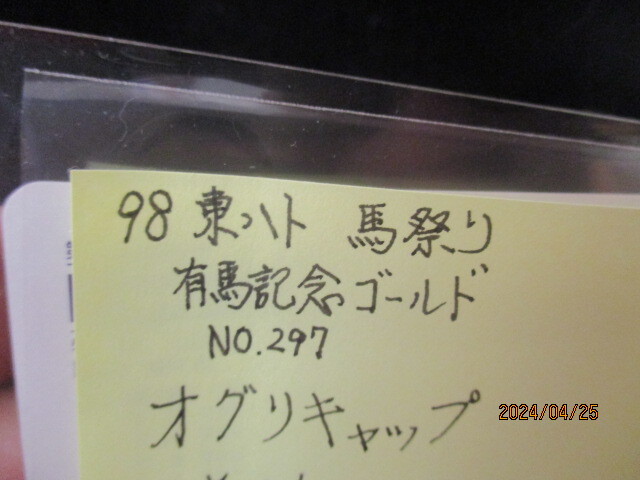 98 東ハト 馬祭り
有馬記念ゴールド
NO.297
オグリキャップ
2024/04/25